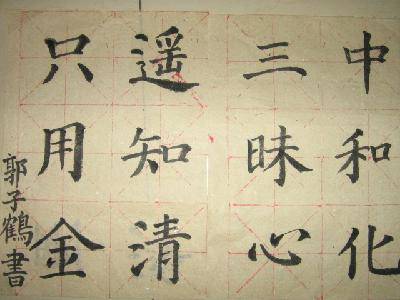 中和化
三昧心
遥知清
只用金
郭子鶴書